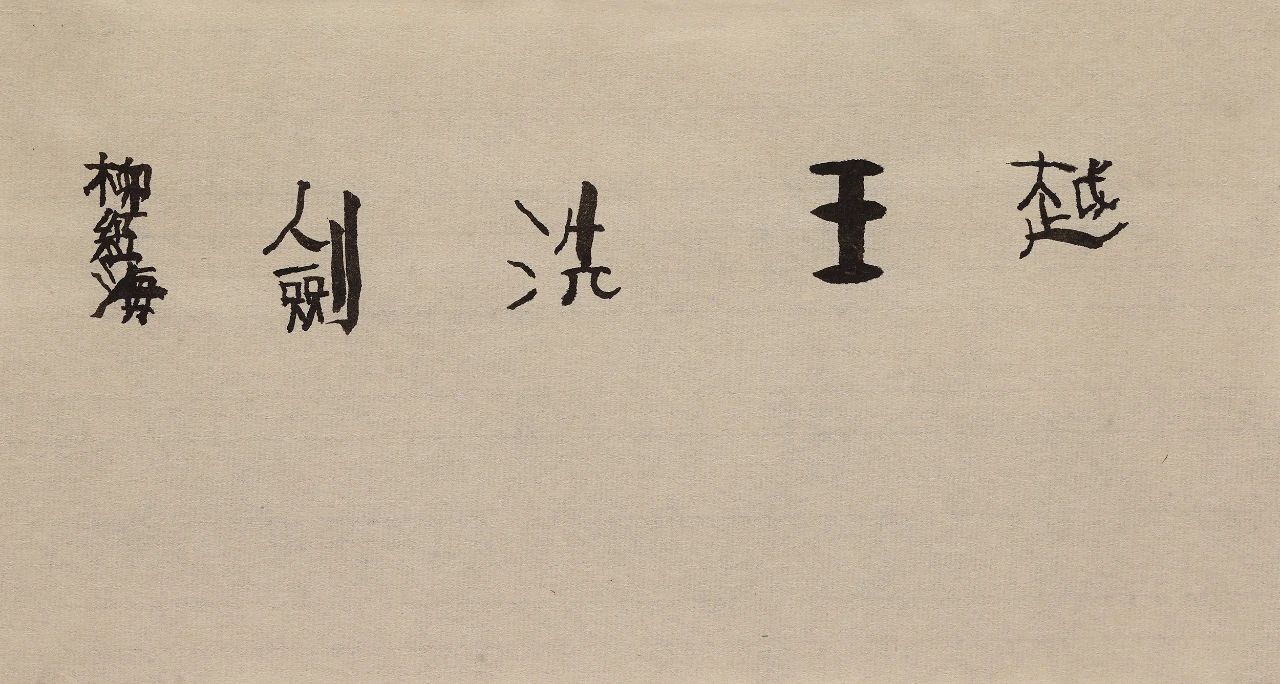 越王洗劍
柳經海